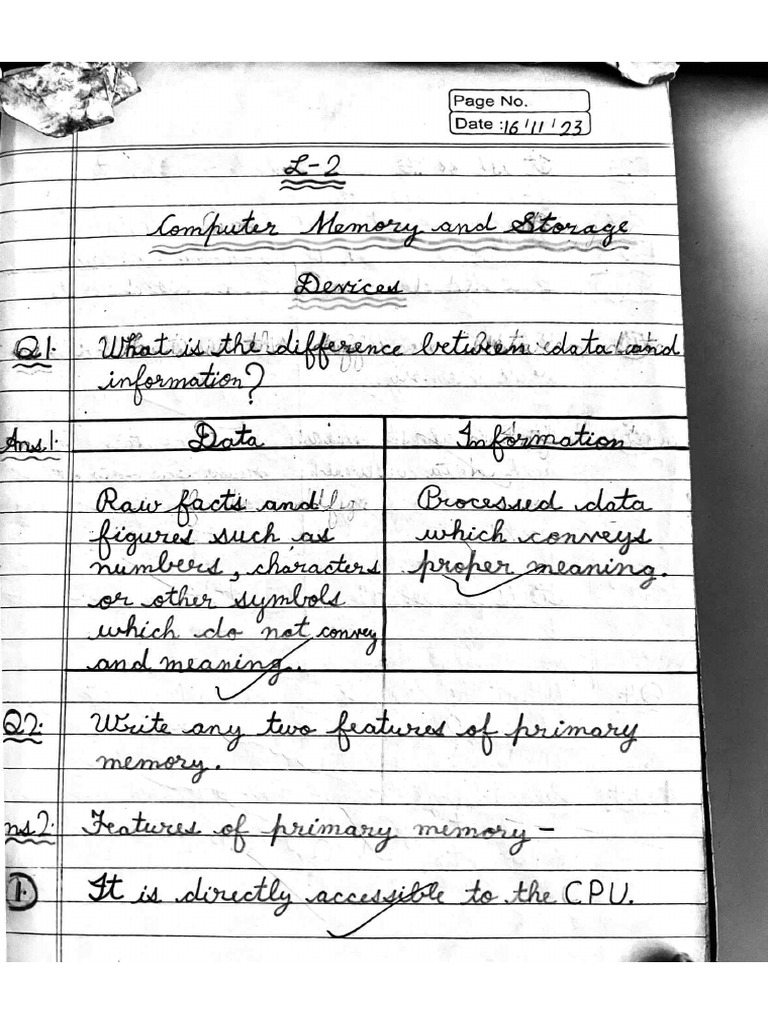 Page No.
Date : 16/11/23
L-2
Computer Memory and Storage
Devices
Q1. What is the difference between data and
information?
Ans1. Data Information
Raw facts and Processed data
figures such as which conveys
numbers, characters proper meaning.
or other symbols
which do not convey
and meaning.
Q2. Write any two features of primary
memory.
ns2. Features of primary memory -
1. It is directly accessible to the CPU.